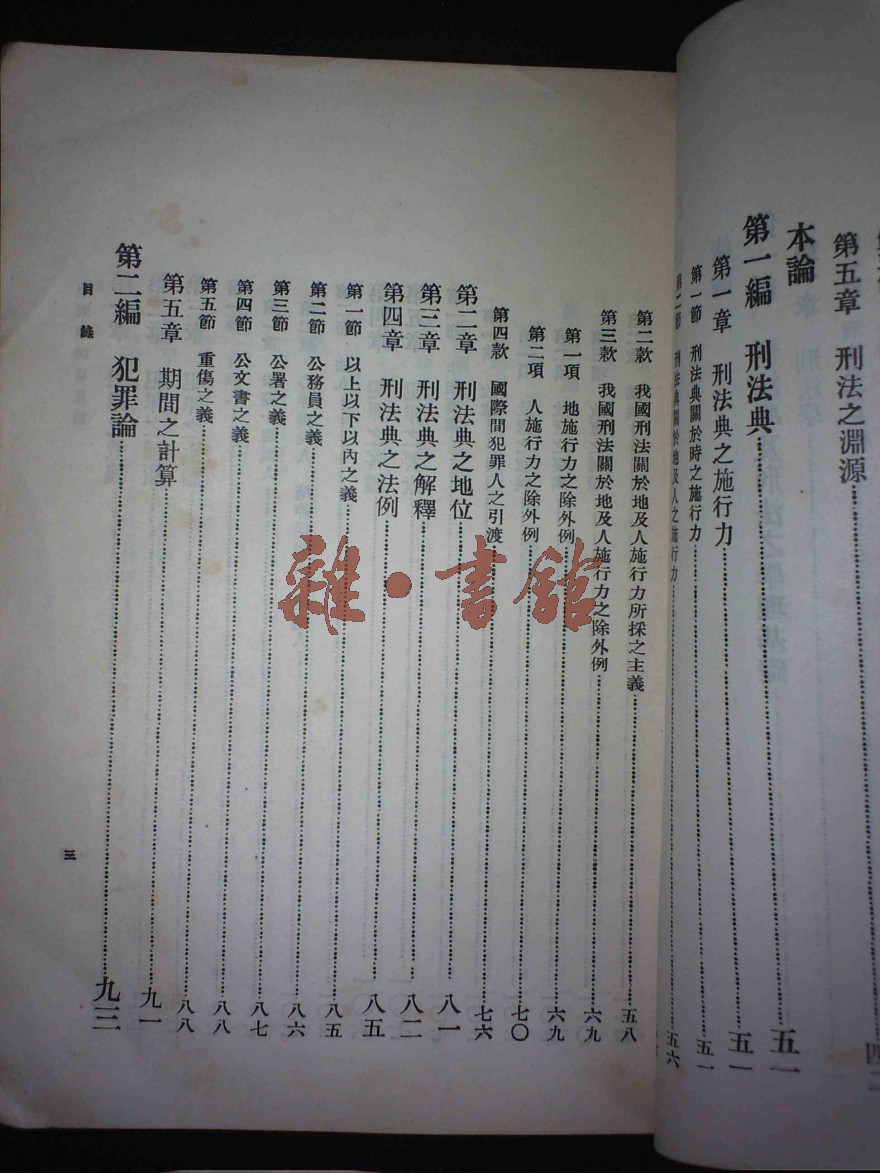 第五章　刑法之淵源
本論
第一編　刑法典……五一
第一章　刑法典之施行力……五一
第一節　刑法典關於時之施行力……五一
第二節　刑法典關於地及人之施行力……五六
第二款　我國刑法關於地及人施行力所採之主義……五八
第三款　我國刑法關於地及人施行力之除外例……六九
第一項　地施行力之除外例……六九
第二項　人施行力之除外例……七〇
第四款　國際間犯罪人之引渡……七六
第二章　刑法典之地位……八一
第三章　刑法典之解釋……八二
第四章　刑法典之法例……八五
第一節　以上以下以內之義……八五
第二節　公務員之義……八六
第三節　公署之義……八七
第四節　公文書之義……八八
第五節　重傷之義……八八
第五章　期間之計算……九一
第二編　犯罪論……九三
目錄
三
雜·書館